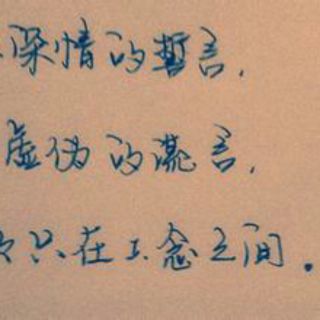 深情的誓言,
虚伪的谎言,
只在念之间.